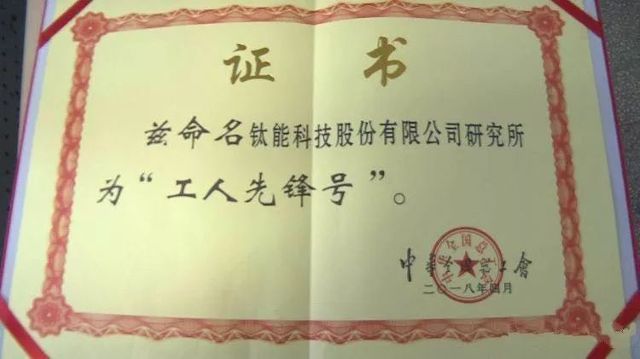 证 书
兹命名钛能科技股份有限公司研究所
为“工人先锋号”。
中華全國總工會
二〇一八年四月